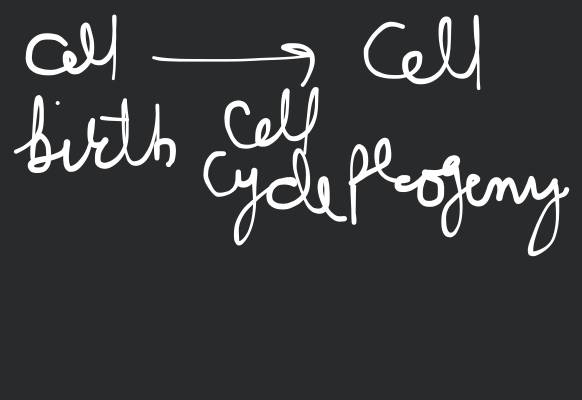 Cell → Cell
birth Cell
Cycle Progeny